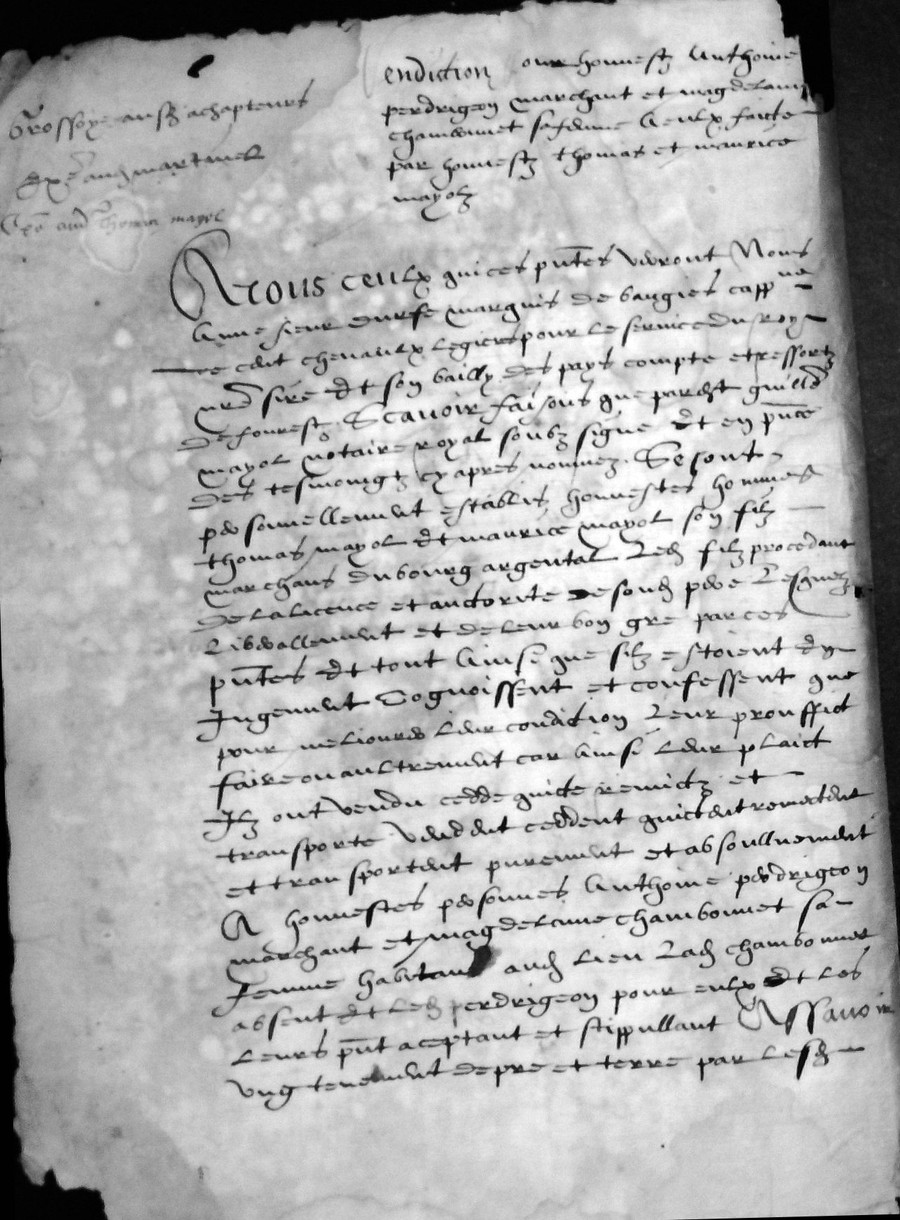 Grossoye ausd achapteurs
Exp aud martinel
Exp aud Thomas mayol
endiction pour honneste Anthoine
perdrigeon marchant et magdelaine
chambonnet sa femme a eulx faicte
par honnestz thomas et maurice
mayolz
A tous ceulx qui ces pntes verront Nous
Anne sieur durfe marquis de baugies capp ne
de cent chevaulx legiers pour le service du roy
nre sire et son bailly des pays compte et ressortz
de fourestz Scavoir faisons que par dt guilld
mayol notaire royal soubz signe et en pnce
des tesmoingtz cy apres nommez Se sont
personnellement establis honnestes hommes
thomas mayol et maurice mayol son filz
marchans du bourg argental led filz procedant
de la licence et auctorite de sond pere lesquelz
liberallement et de leur bon gre par ces
pntes et tout ainsi que silz estoient en
jugement Cognoissent et confessent que
pour meliourer leur condition leur prouffict
faire ou aultrement car ainsi leur plaict
Ilz ont vendu cedde quicte remictz et
transporte vendent ceddent quictent remectent
et transportent purement et absolluement
A honnestes personnes Anthoine perdrigeon
marchant et magdelaine chambonnet sa
femme habitans aud lieu lad chambonnet
absent et led perdrigeon pour eulx et les
leurs pnt aceptant et stippullant Assavoir
ung tenement de pre et terre par lesd